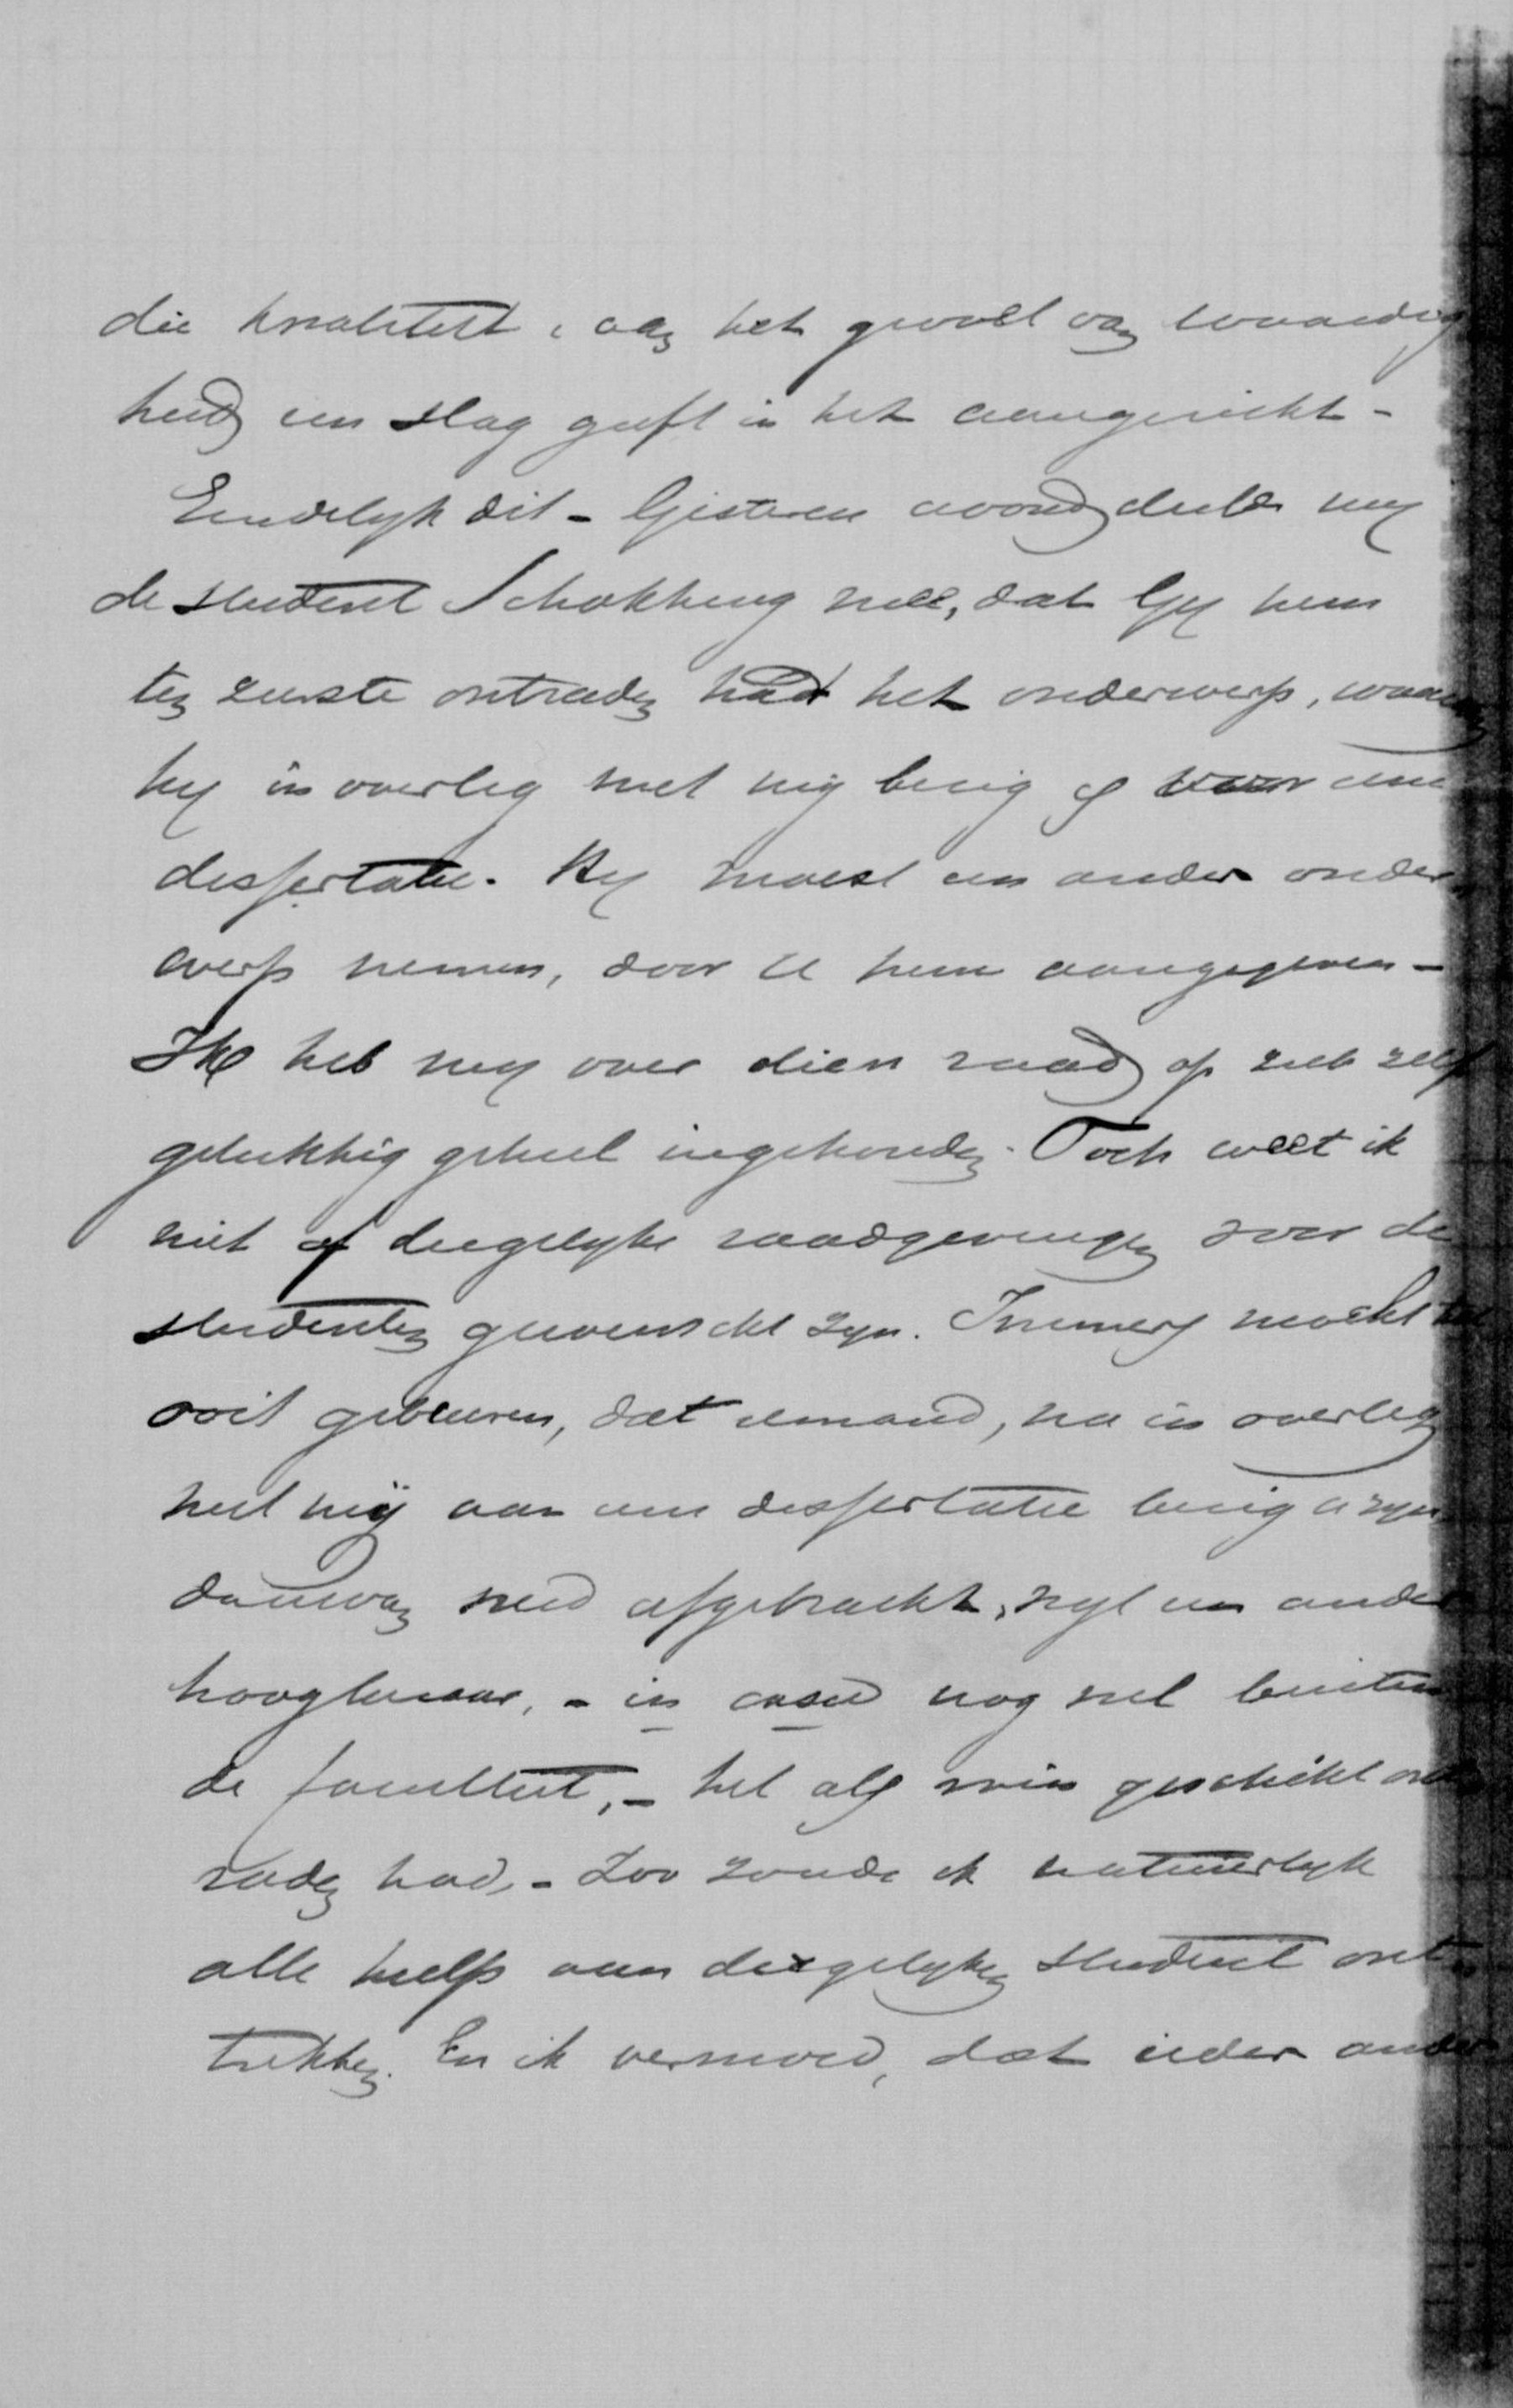 die kwaliteit, aan het gevoel van waardig
heid een slag geeft in het aangezicht -
Eindelyk dit - Gisteren avond deelde my
de student Schokking mee, dat Gy hem
ten zeerste ontraden hadt het onderwerp, waaraan
hy in overleg met mij bezig is voor eene
dissertatie. Hy moest een ander onder
werp nemen, door U hem aangegeven -
Ik heb my over dien raad op zich zelf
gelukkig geheel ingehouden. Toch weet ik
niet of diergelyke raadgevingen voor de
studenten gewenscht zyn. Immers mocht het
ooit gebeuren, dat iemand, na in overleg
met mij aan eene dissertatie bezig te zyn
daarvan werd afgebracht, wyl een ander
hoogleeraar, - in casu nog wel buiten
de faculteit, - het als min geschikt ont
raden had, - Zoo zoude ik natuurlyk
alle hulp aan diergelyken student ont
trekken. En ik vermoed, dat ieder ander